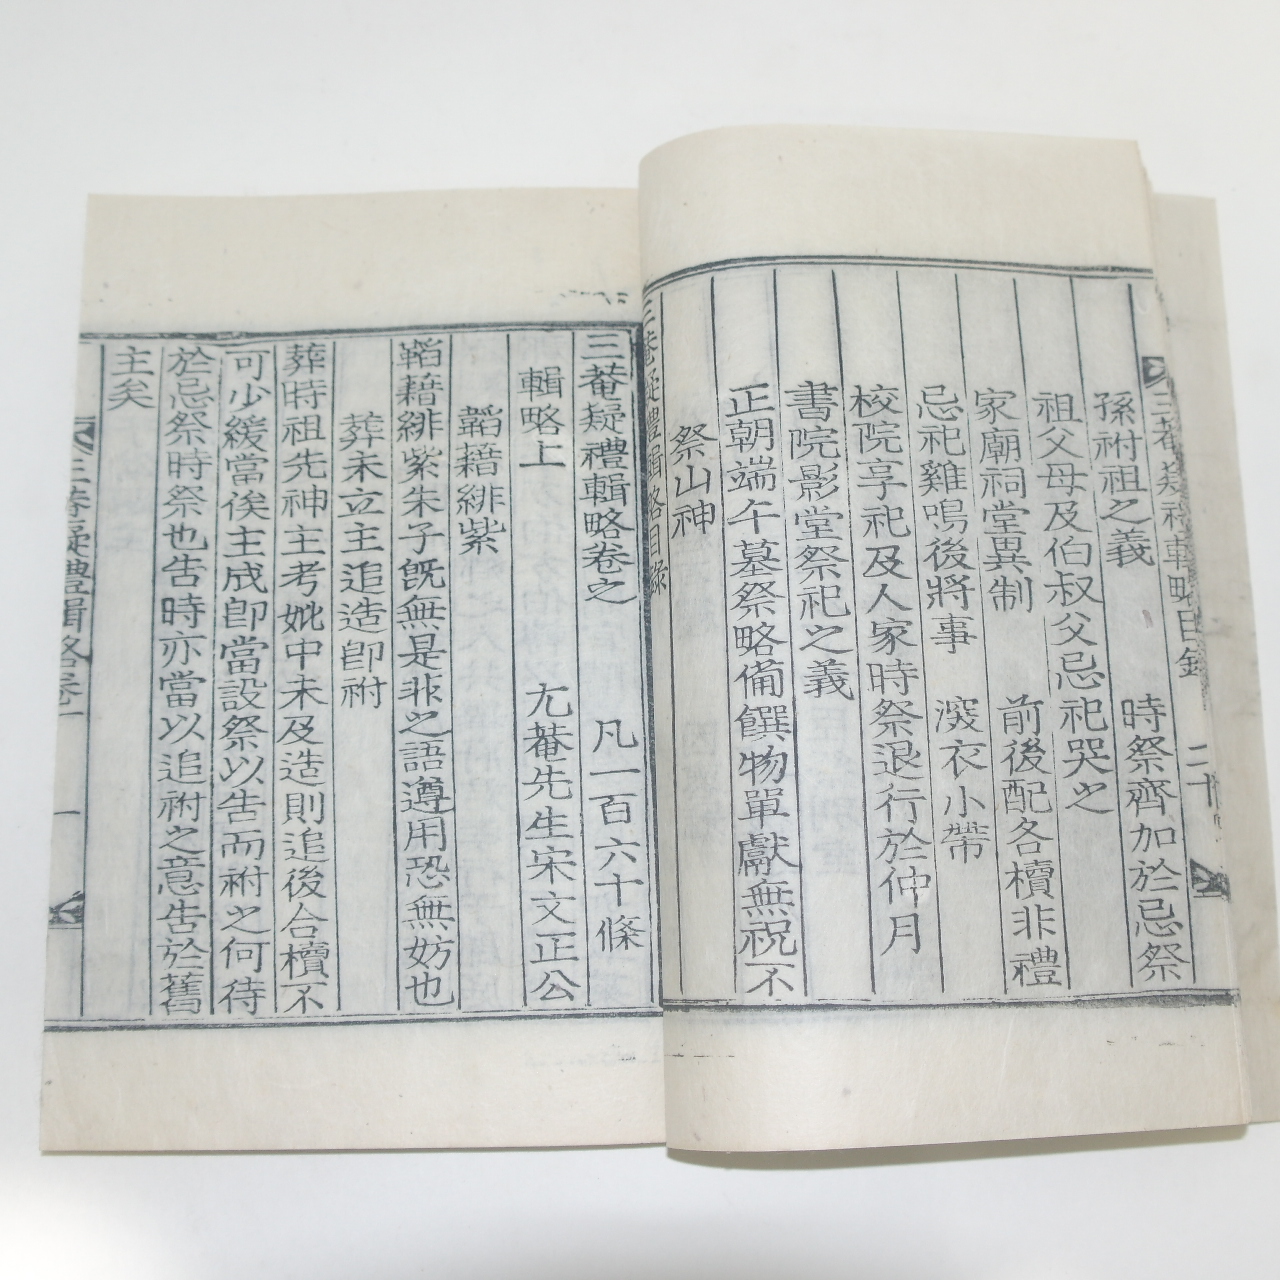 三菴疑禮輯略目錄 二十
孫祔祖之義 時祭齊加於忌祭
祖父母及伯叔父忌祀哭之
家廟祠堂異制 前後配各櫝非禮
忌祀雞鳴後將事 深衣小帶
校院享祀及人家時祭退行於仲月
書院影堂祭祀之義
正朝端午墓祭略備饌物單獻無祝不
祭山神
三菴疑禮輯略目錄
三菴疑禮輯略卷之 凡一百六十條
輯略上 尤菴先生宋文正公
韜藉緋紫
韜藉緋紫朱子旣無是非之語遵用恐無妨也
葬未立主追造卽祔
葬時祖先神主考妣中未及造則追後合櫝不
可少緩當俟主成卽當設祭以告而祔之何待
於忌祭時祭也告時亦當以追祔之意告於舊
主矣
三菴疑禮輯略卷一 一